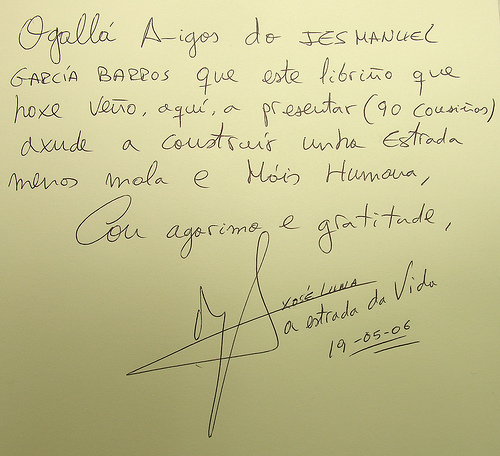 Ogallá Amigos do IES MANUEL
GARCÍA BARROS que este libriño que
hoxe veño, aquí, a presentar (90 cousiños)
axude a construír unha Estrada
menos mala e Máis Humana,
Con agarimo e gratitude,
XOSÉ LUNA
a estrada da Vida
19-05-06